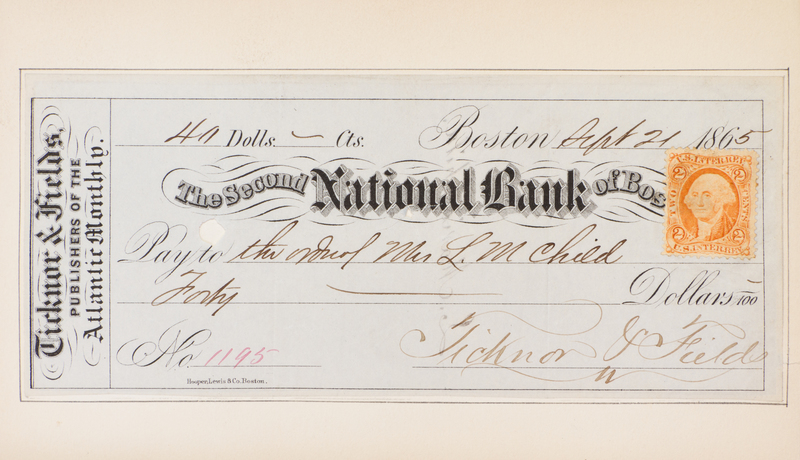 Ticknor & Fields,
PUBLISHERS OF THE
Atlantic Monthly.
40 Dolls. – Cts. Boston Sept 21 1865
The Second National Bank of Bos
Pay to the order of Mrs L. M Child
Forty — Dollars –/100
No 1195
Ticknor & Fields
Hooper, Lewis & Co. Boston.
U.S. INTER. REV.
2 2
TWO CENTS
2 2
U.S. INTER. REV.